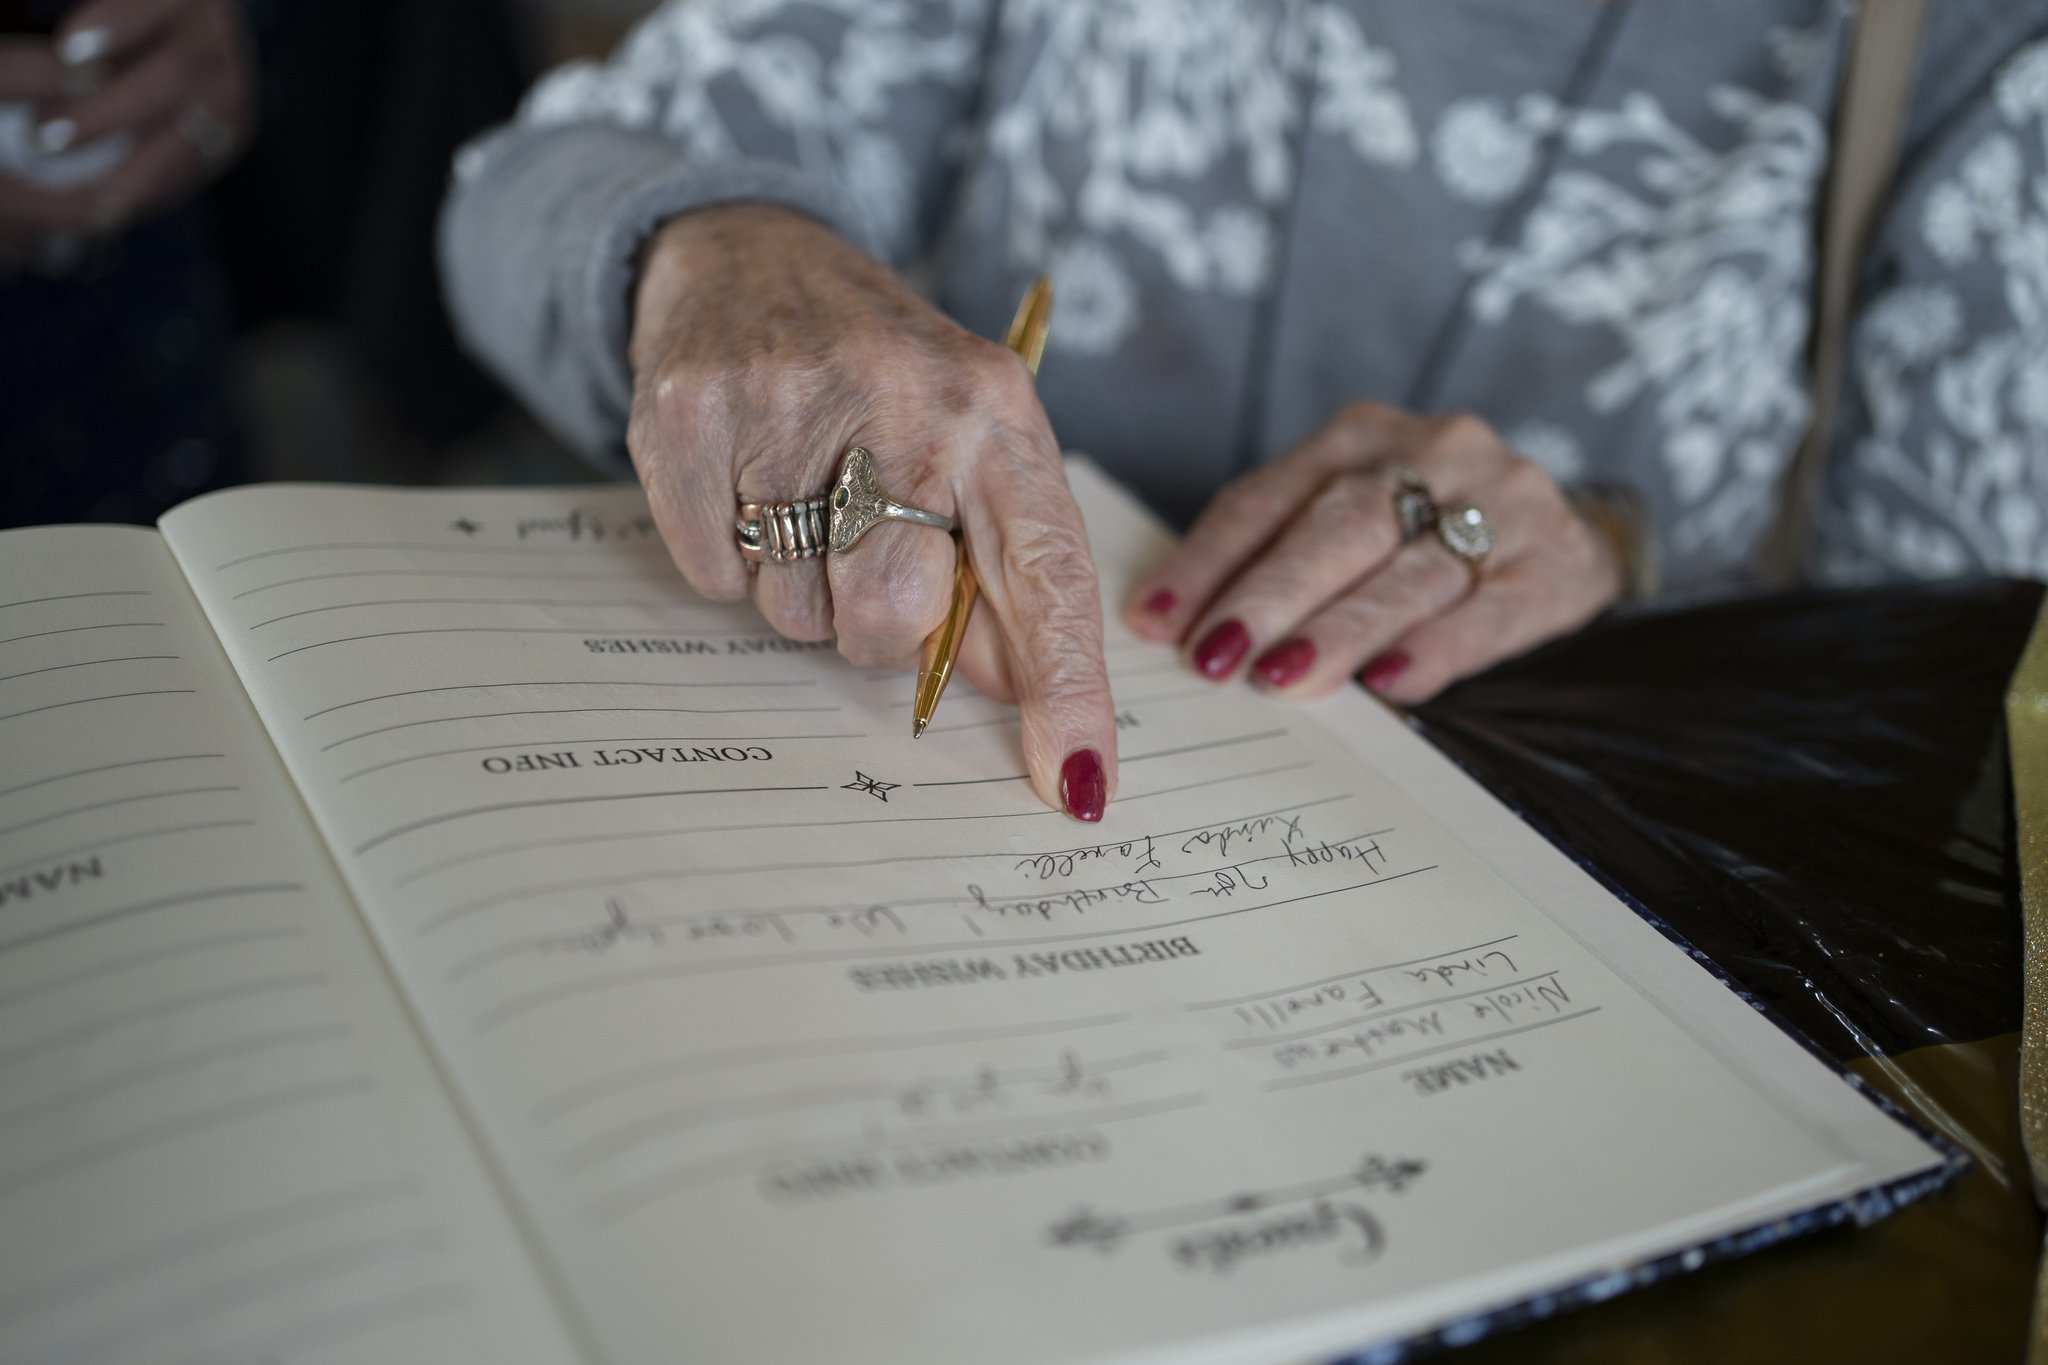 Guests
NAME
CONTACT INFO
Nicole Matthews
Linda Fanelli
BIRTHDAY WISHES
Happy 70th Birthday! We love you
Linda Fanelli
CONTACT INFO
BIRTHDAY WISHES
NAM